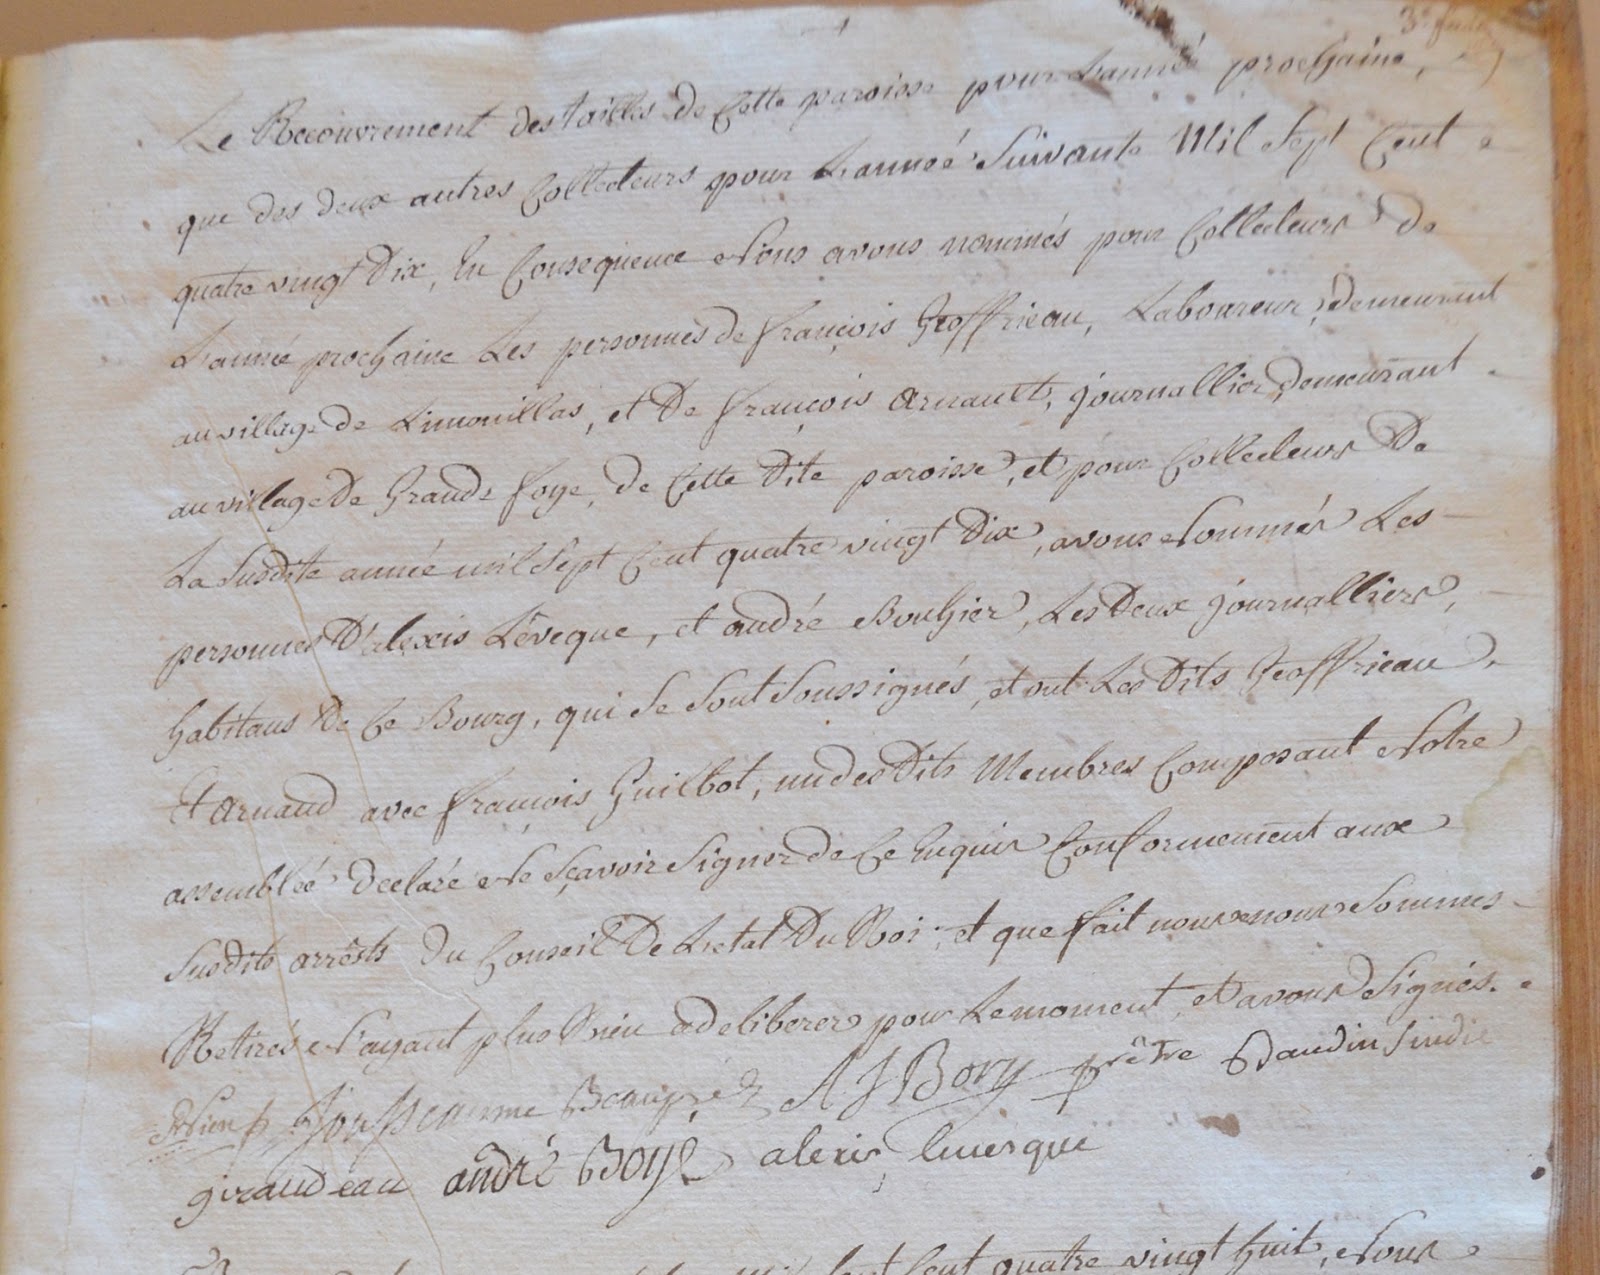 3e feuil
Le Recouvrement des tailles de Cette paroisse pour L'année prochaine,
que des deux autres Collecteurs pour L'année Suivante Mil Sept Cent
quatre vingt Dix, En Consequence Nous avons nommés pour Collecteurs de
L'année prochaine Les personnes de françois Geoffrieau, Laboureur, demeurant
au village de Limouillas, et De françois Arnault, journallier, demeurant
au village De Grande foye, de Cette Dite paroisse, et pour Collecteurs De
La Susdite année mil Sept Cent quatre vingt Dix, avons Nommés Les
personnes D'alexis Lêveque, et andré Bouhier, Les Deux journalliers,
habitans De Ce Bourg, qui Se Sont Soussignés, et ont Les Dits Geoffrieau
Et Arnaud avec françois Guilbot, un des Dits Membres Composant Notre
assembleé declaré Ne Sçavoir Signer de Ce Enquis Conformement aux
Susdits arrêsts du Conseil De L'etat Du Roi; et que fait nous nous Sommes
Retirés N'ayant plus Rien a deliberer pour Le moment, et avons Signés.
Jousseaume Beaupré A J Bory prêtre Baudin Sindic
giraudeau andré Boyé alexis leuesque
Sept Cent quatre vingt huit, Nous